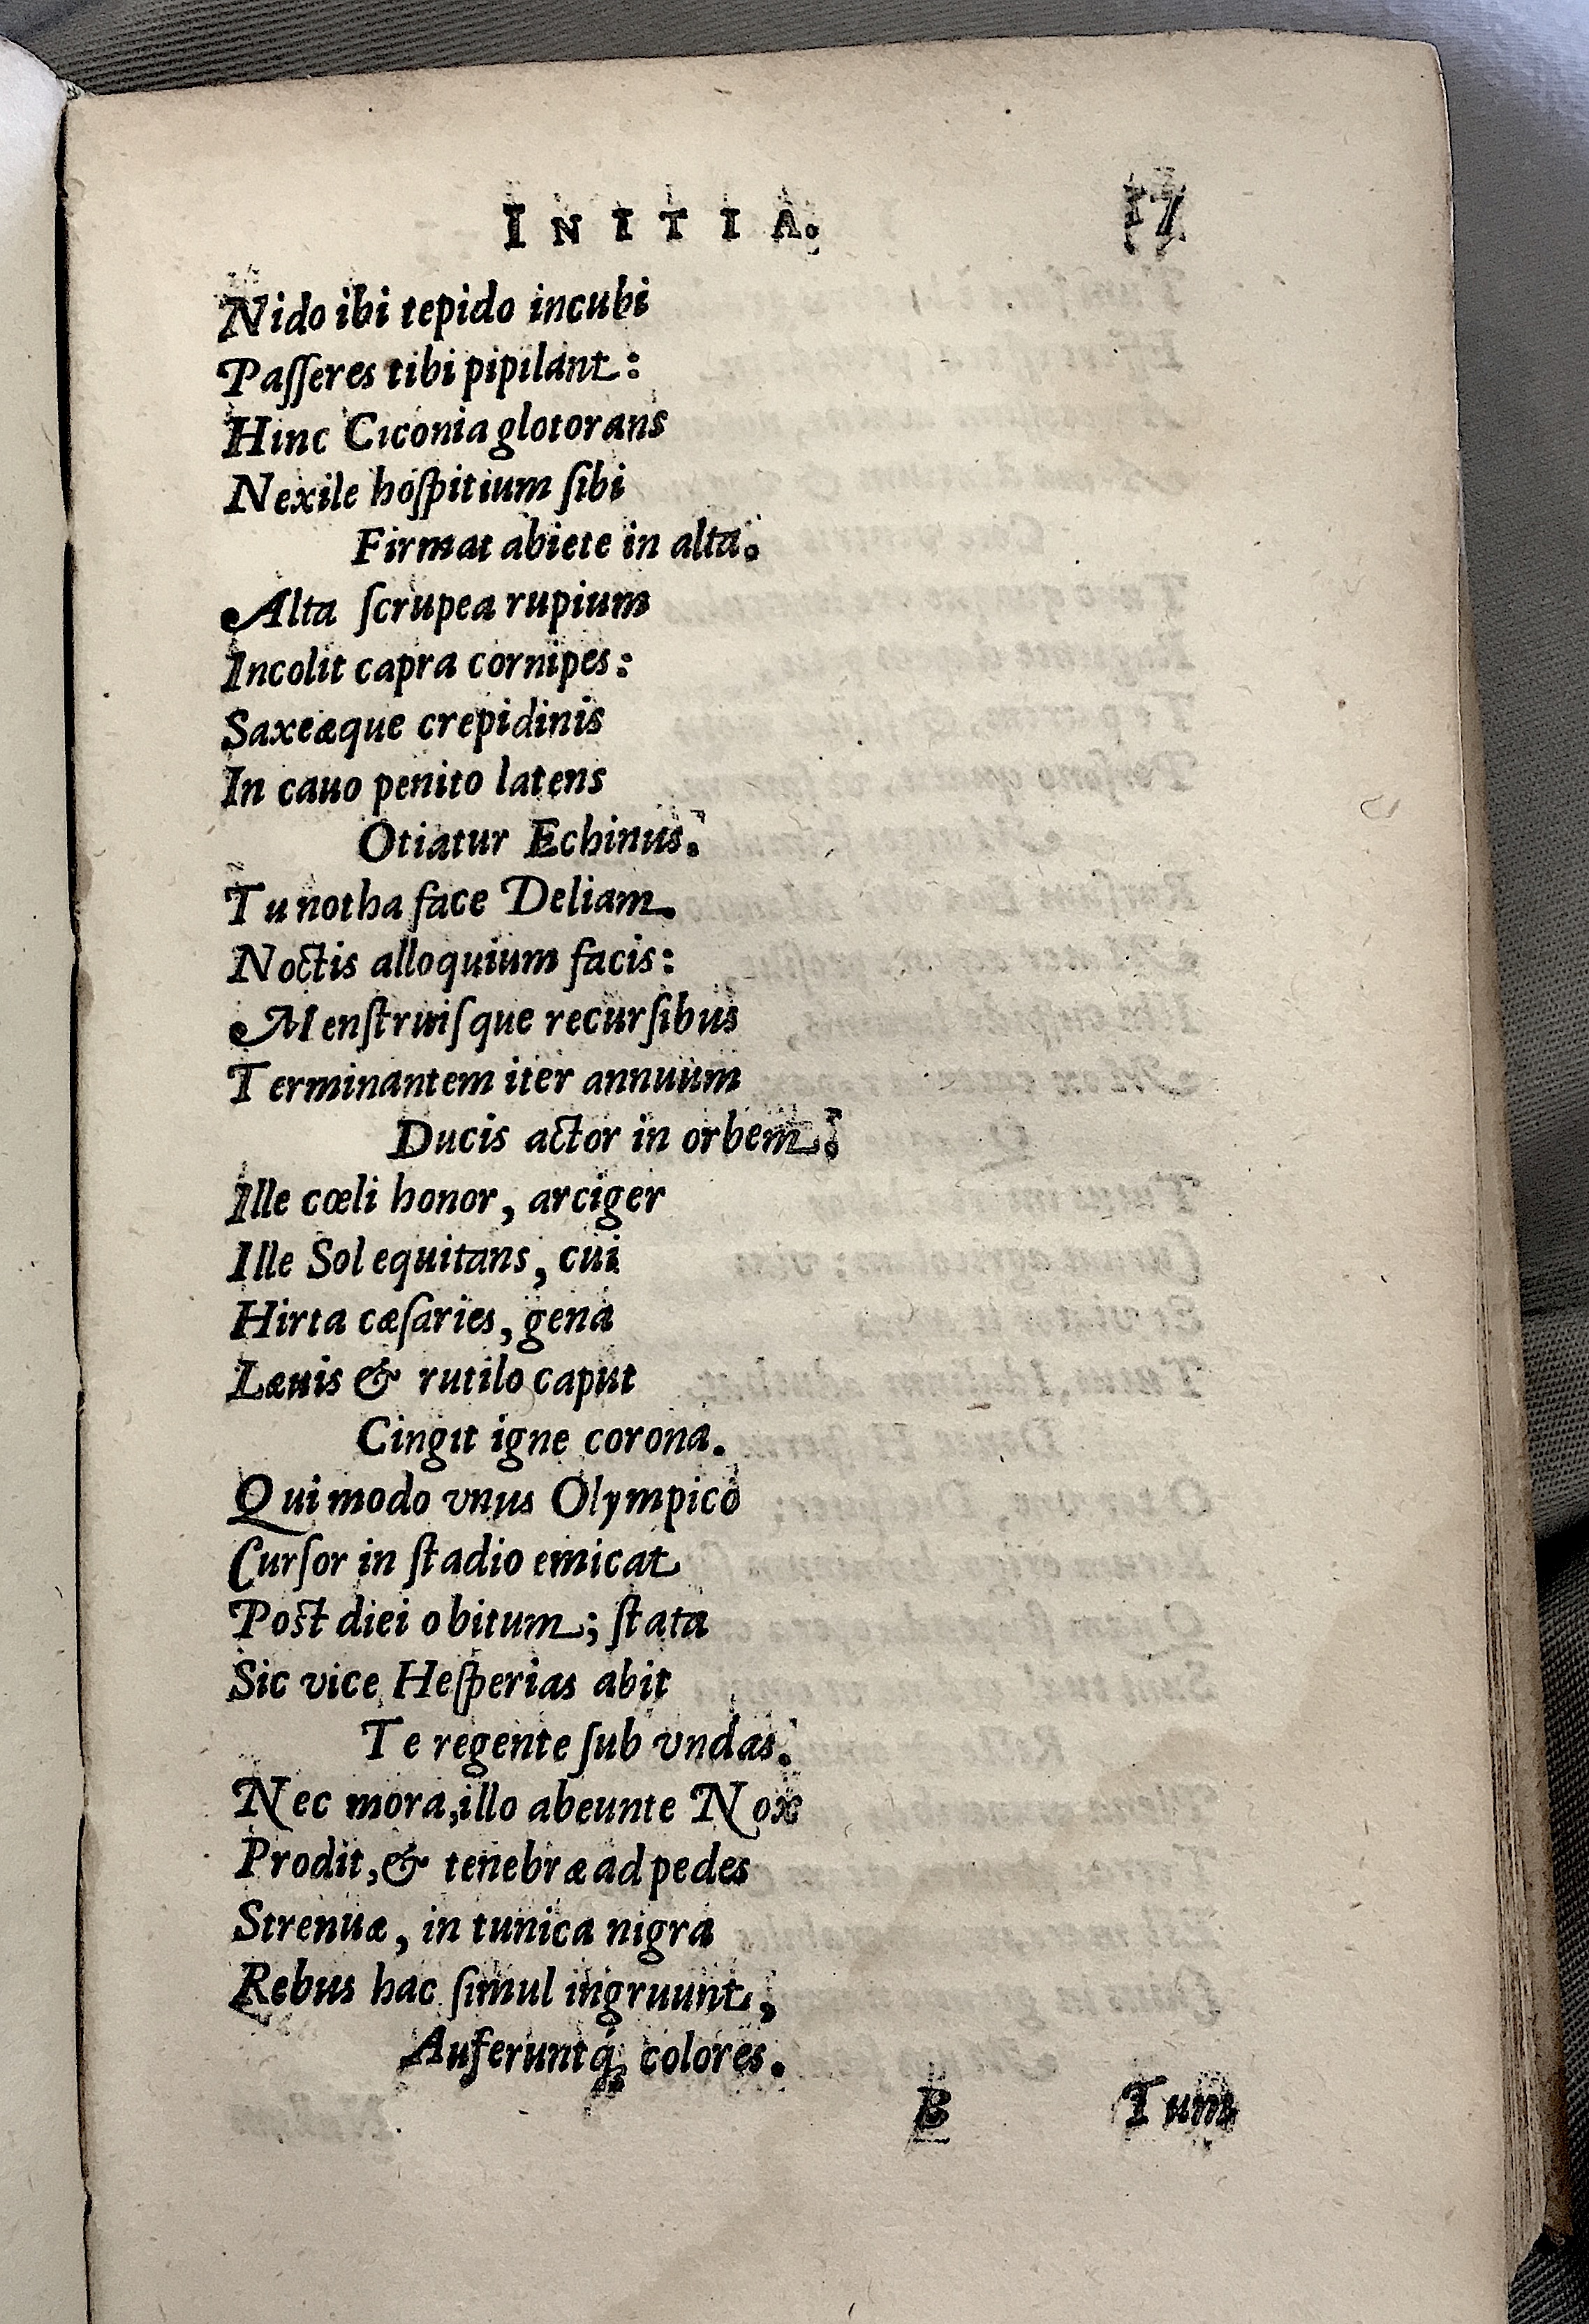 INITIA. 17
Nido ibi tepido incubi
Paſſeres tibi pipilant:
Hinc Ciconia glotorans
Nexile hoſpitium ſibi
Firmat abiete in alta.
Alta ſcrupea rupium
Incolit capra cornipes:
Saxeæque crepidinis
In cauo penito latens
Otiatur Echinus.
Tu notha face Deliam.
Noctis alloquium facis:
Menſtruiſque recurſibus
Terminantem iter annuum
Ducis actor in orbem.
Ille cœli honor, arciger
Ille Sol equitans, cui
Hirta cæſaries, gena
Læuis & rutilo caput
Cingit igne corona.
Qui modo vnus Olympico
Curſor in ſtadio emicat
Poſt diei obitum; ſtata
Sic vice Heſperias abit
Te regente ſub vndas.
Nec mora, illo abeunte Nox
Prodit, & tenebræ ad pedes
Strenuæ, in tunica nigra
Rebus hac ſimul ingruunt,
Auferuntq́; colores.
B Tum